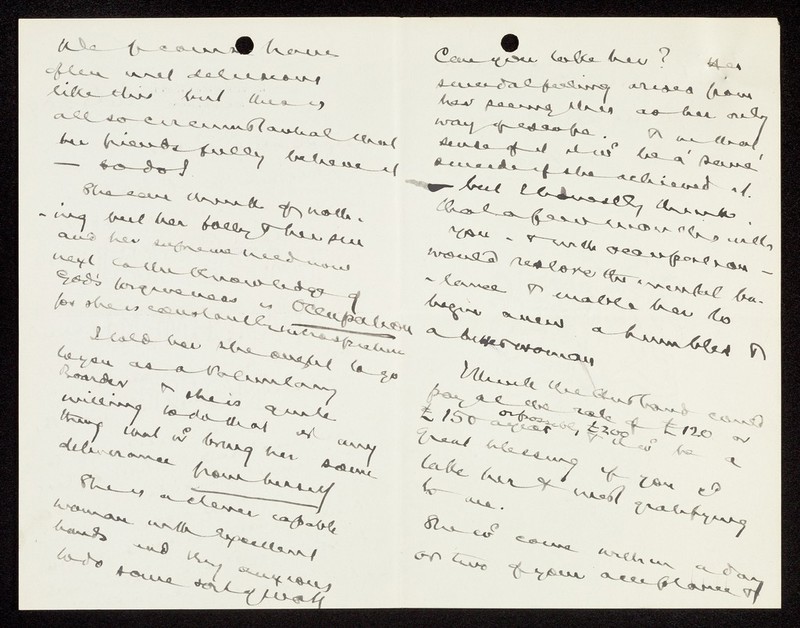 We of course have
often met delusions
like this but this is
all so circumstantial that
her friends fully believe it
— so do I
She can think of noth-
-ing but her folly & her sin
and her supreme need now
next to the knowledge of
God's forgiveness is Occupation
for she is constantly introspective
I told her she ought to go
to you as a Voluntary
Boarder & she is quite
willing to do that or any
thing that wd bring her some
deliverance from herself
She is a clever capable
woman with excellent
hands and very anxious
to do some sort of work
Can you take her? Her
suicidal feeling arises from
her seeing this as her only
way of escape. & in that
sense of it it wd be a 'sane'
suicide if she achieved it.
— but I honestly think
that a few months with
you - & with occupation -
would restore the mental ba-
-lance & enable her to
begin anew a humbler &
a better woman
I think the husband could
pay at the rate of £120 or
£150 a year or possibly £200 & it wd be a
great blessing if you cd
take her & most gratifying
to me.
She wd come within a day
or two of your acceptance &